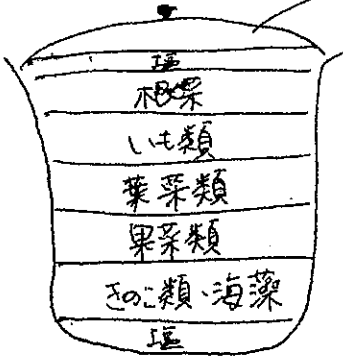 塩
根菜
いも類
葉菜類
果菜類
きのこ類・海藻
塩